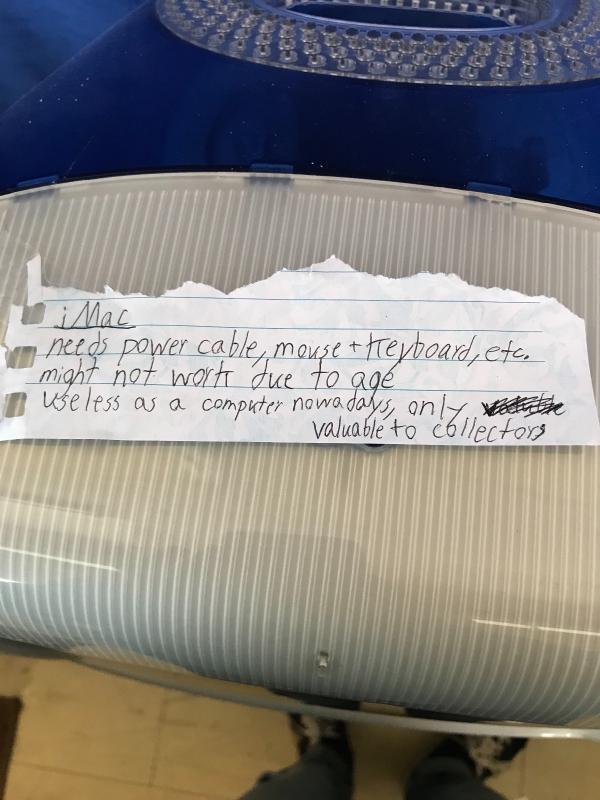 iMac
needs power cable, mouse + keyboard, etc.
might not work due to age
useless as a computer nowadays, only
valuable to collectors